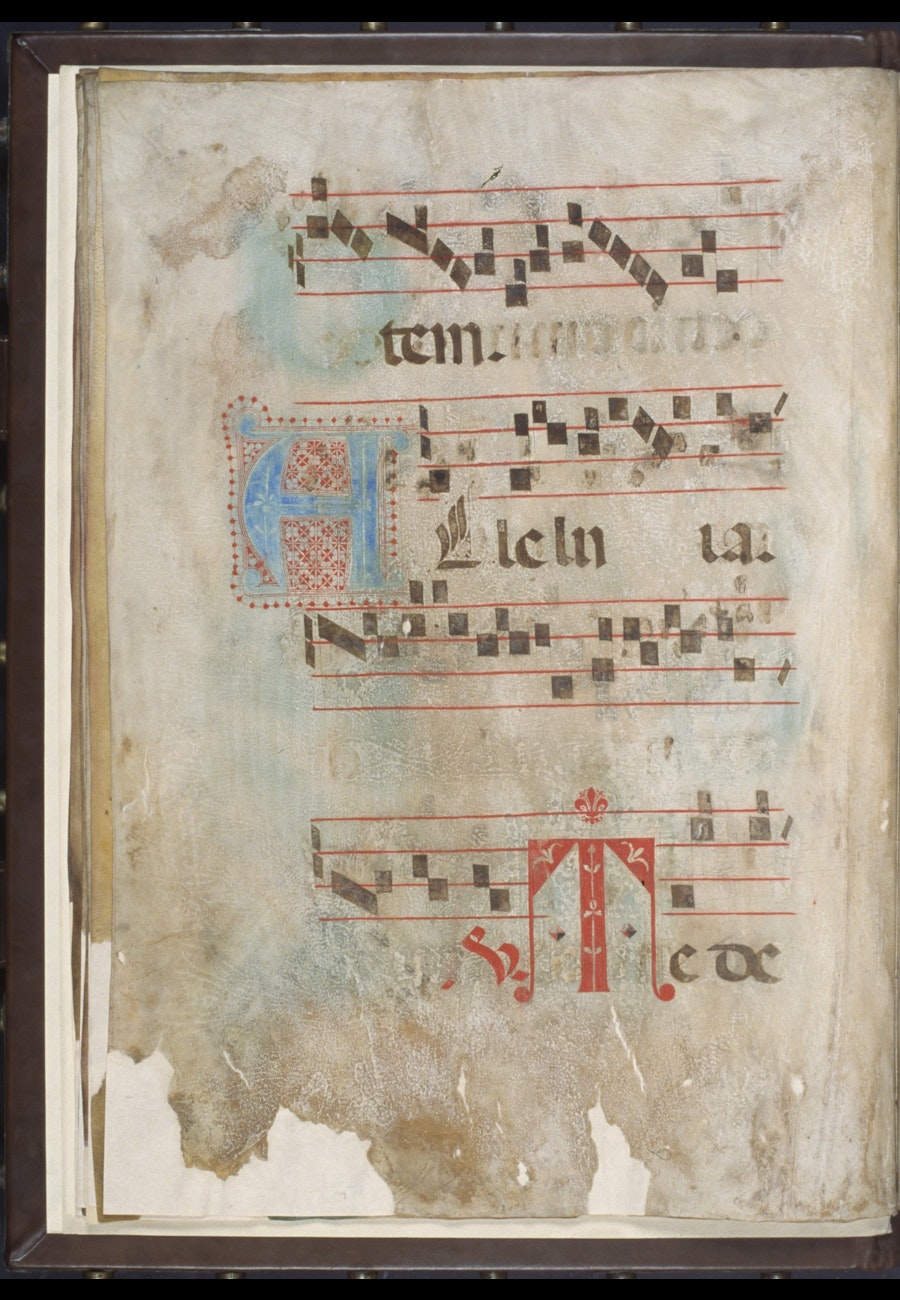 tem.
ALlelu ia.
℣ Te de